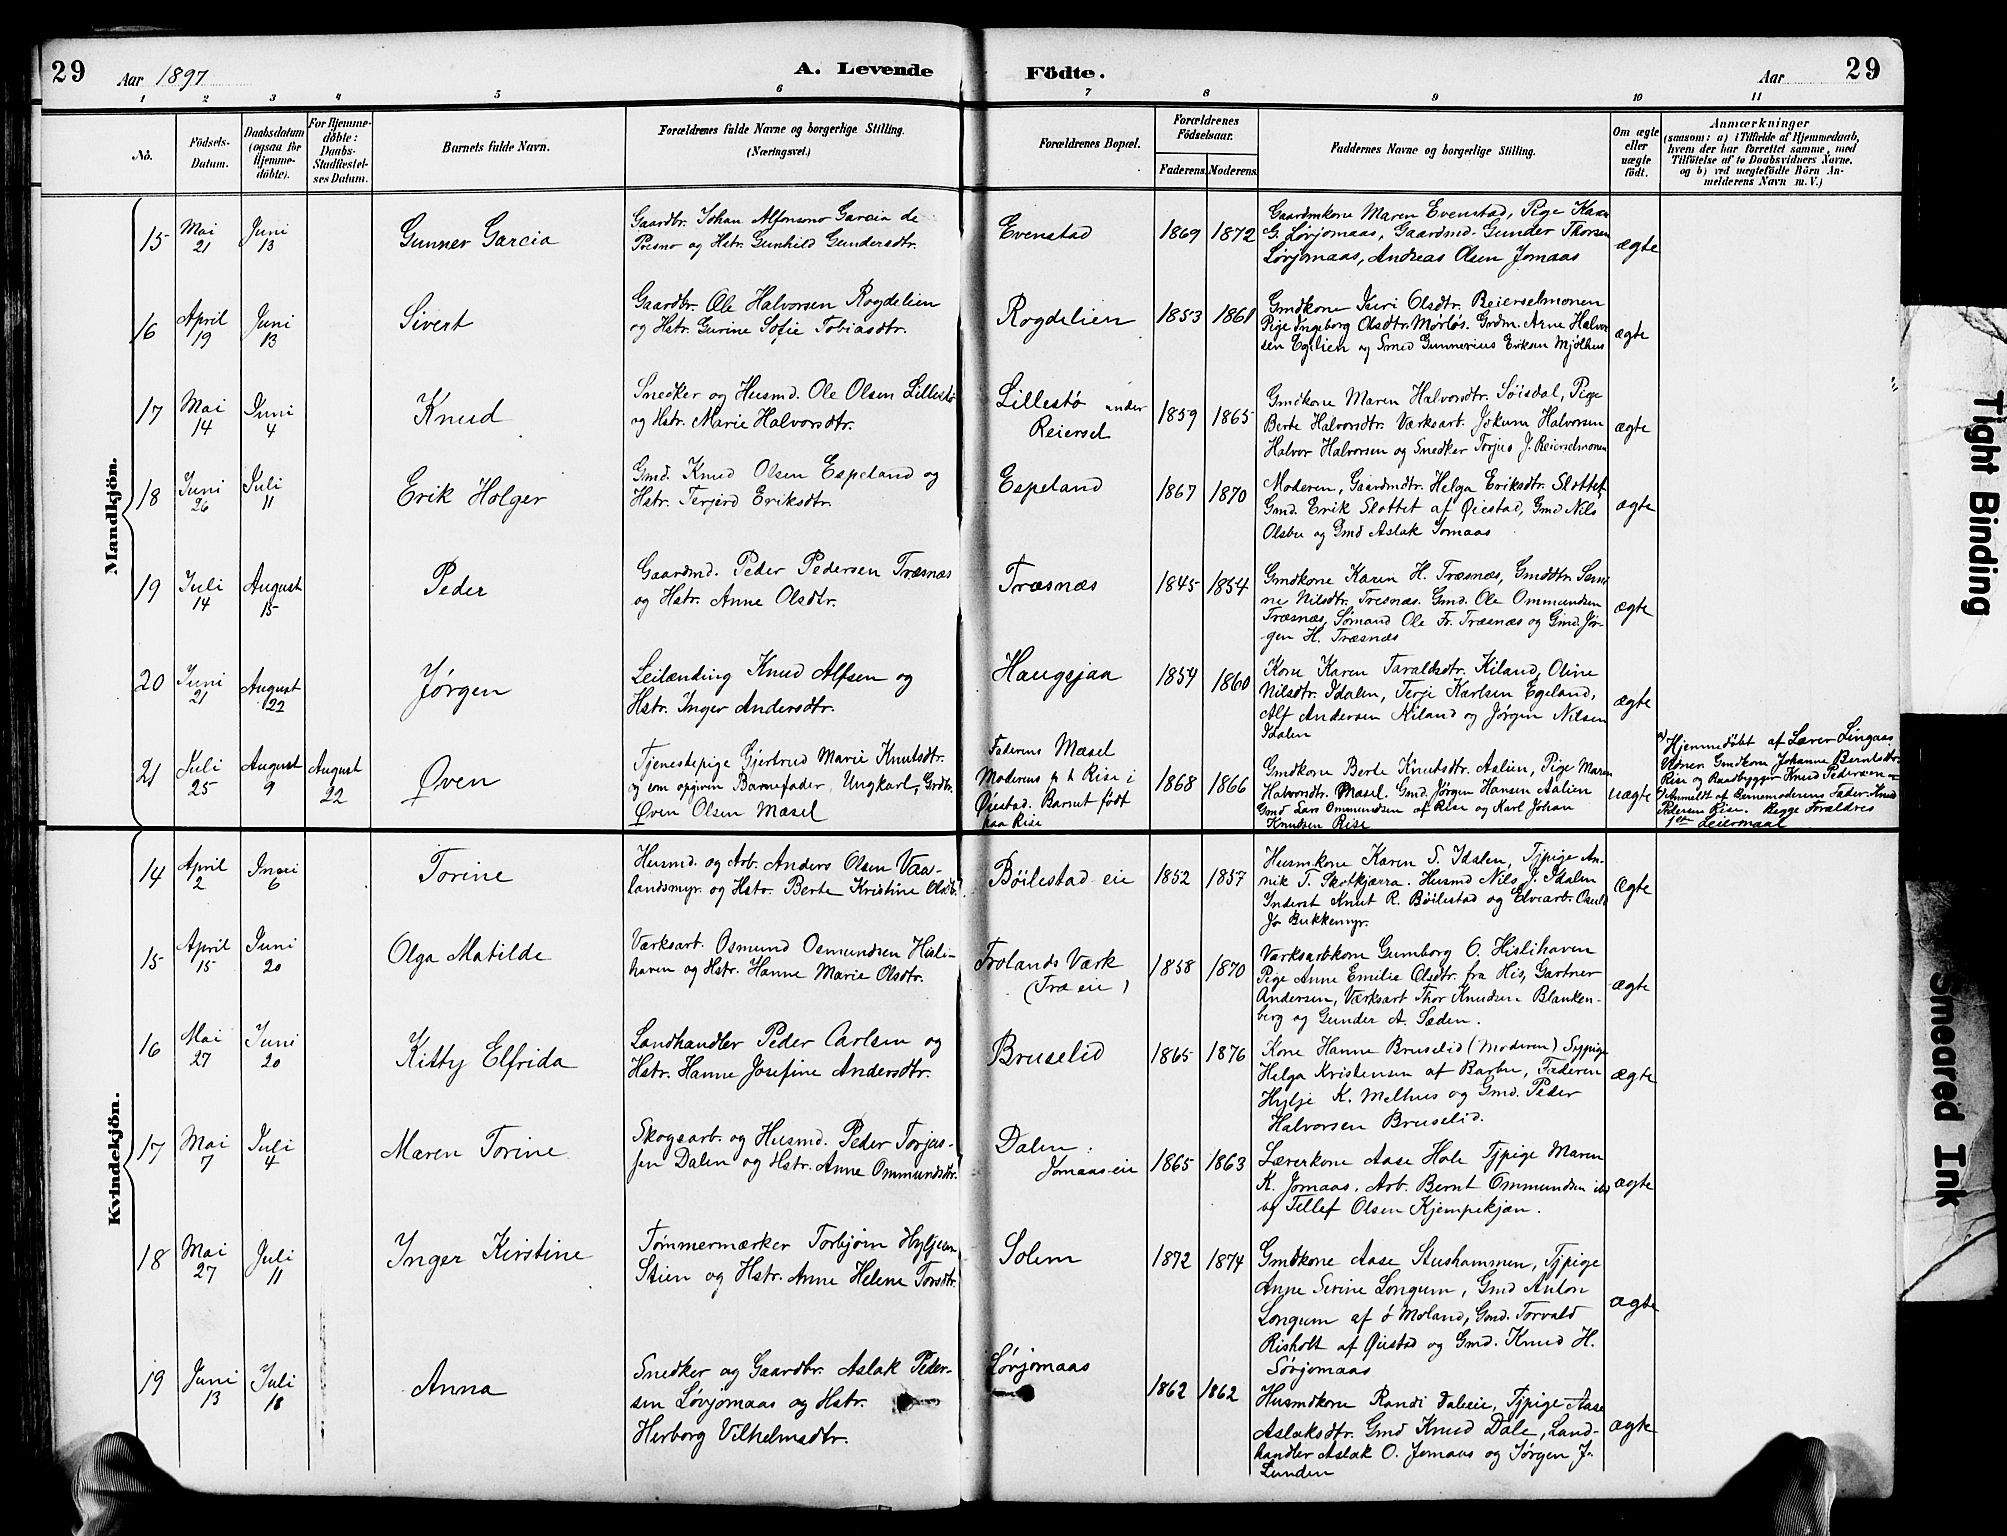 29
Aar 1897
A. Levende
Födte.
Aar
29
1 2 3 4 5 6 7 8 9 10 11
No.
Födsels-
Datum.
Daabsdatum
(ogsaa for
Hjemme-
döbte).
For Hjemme-
döbte:
Daabs-
Stadfæstel-
ses Datum.
Barnets fulde Navn.
Forældrenes fulde Navne og borgerlige Stilling.
(Næringsvei.)
Forældrenes Bopæl.
Forældrenes
Födselsaar.
Faderens. Moderens.
Faddernes Navne og borgerlige Stilling.
Om ægte
eller
uægte
födt.
Anmærkninger
(saasom: a) i Tilfælde af Hjemmedaab,
hvem der har forrettet samme, med
Tilföielse af to Daabsvidners Navne.
og b) ved uægtefödte Börn An-
melderens Navn m. V.)
Mandkjön.
15
Mai
21
Juni
13
Gunner Garcia
Gaardbr. Johan Alfonsno Garcia de
Presno og Hstr. Gunhild Gundersdtr.
Evenstad
1869 1872
Gaardmkone Maren Evenstad, Pige Kaar
G. Løvjomaas, Gaardmd. Gunder Thorsen
Løvjomaas, Andreas Olsen Jomaas
ægte
16
April
19
Juni
13
Sivert
Gaardbr. Ole Halvorsen Rogdelien
og Hstr. Gurine Sofie Tobiasdtr.
Rogdelien
1853 1861
Gmdkone Siri Olsdtr. Reierselmonen
Pige Ingeborg Olsdtr. Mørløs. Grdm. Arne Halvor
sen Egelien og Smed Gunnerius Eriksen Mjølhus
ægte
17
Mai
14
Juni
4
Knud
Snedker og Husmd. Ole Olsen Lillestø
og Hstr. Marie Halvorsdtr.
Lillestø under
Reiersel
1859 1865
Gmdkone Maren Halvorsdtr. Søisdal, Pige
Berte Halvorsdtr. Værksarb. Jokum Halvorsen
Halvor Halvorsen og Snedker Torjus J. Reierselmonen
ægte
18
Juni
26
Juli
11
Erik Holger
Gmd. Knud Olsen Espeland og
Hstr. Terjerd Eriksdtr.
Espeland
1867 1870
Moderen, Gaardmdtr. Helga Eriksdtr. Slottet,
Gmd. Erik Slottet af Øiestad, Gmd Nils
Olsbu og Gmd Aslak Jomaas
ægte
19
Juli
14
August
15
Peder
Gaardmd. Peder Pedersen Træsnæs
og Hstr. Anne Olsdtr.
Træsnæs
1845 1854
Gmdkone Karen H. Træsnæs, Gmddtr. Seri
ne Nilsdtr. Tresnæs. Gmd. Ole Ommundsen
Træsnæs, Sømand Ole Fr. Træsnæs og Gmd. Jør-
gen H. Træsnæs
ægte
20
Juni
21
August
22
Jørgen
Leilænding Knud Alfsen og
Hstr. Inger Andersdtr.
Haugsjaa
1854 1860
Kone Karen Taraldsdtr. Kiland, Oline
Nilsdtr. Idalen, Terje Karlsen Egeland,
Alf Andersen Kiland og Jørgen Nilsen
Idalen
ægte
21
Juli
25
August
9
August
22
Øven
Tjenestepige Gjertrud Marie Knutsdtr.
og som opgiven Barnefader, Ungkarl, Grdbr.
Øven Olsen Mæsel
Faderens Mæsel
Moderens p t Rise i
Øiestad. Barnet født
paa Rise
1868 1866
Gmdkone Berte Knutsdtr. Aalien, Pige Maren
Halvorsdtr. Mæsel, Gmd. Jørgen Hansen Aalien
Gmd Lars Ommundsen af Rise og Karl Johan
Knudsen Rise
uægte
a) Hjemmedøbt af Lærer Lingaas
Vidner: Gmdkone Johanne Berntsdtr.
Rise og Baadbygger Knud Pedersen
b) Anmeldt af Bernemoderens Fader Knud
Pedersen Rise. Begge Forældres
1ste Leiermaal
Kvindekjön.
14
April
2
Juni
6
Torine
Husmd. og Arb. Anders Olsen Vaa-
landsmyr. og Hstr. Berte Kristine Olsdtr.
Bøilestad-eie
1852 1857
Husmkone Karen S. Idalen, Tjpige An-
nik T. Skotkjærra. Husmd Nils J. Idalen
Inderst Knut R. Bøilestad og Elvearb. Osuld
Jo Bukkemyr.
ægte
15
April
15
Juni
20
Olga Matilde
Værksarb. Osmund Osmundsen Hisli-
haven og Hstr. Hanne Marie Olsdtr.
Frolands Værk
(Træ eie)
1858 1870
Værksarbkone Gunnborg O. Hislihaven
Pige Anne Emilie Olsdtr. fra His, Gartner
Andersen, Værksarb Thor Knudsen Blanken-
berg og Gunder A. Sæden.
ægte
16
Mai
27
Juni
20
Kitty Elfrida
Landhandler Peder Carlsen og
Hstr. Hanne Josefine Andersdtr.
Bruselid
1865 1876
Kone Hanne Bruselid (Moderen) Sypige
Helga Kristensen af Barbu, Faderen
Hylje K. Melhus og Gmd. Peder
Halvorsen Bruselid.
ægte
17
Mai
7
Juli
4
Maren Torine
Skogsarb. og Husmd. Peder Torjus-
sen Dalen og Hstr. Anne Ommundsdtr.
Dalen,
Jomaas eie
1865 1863
Lærerkone Aase Hole Tjpige Maren
K. Jomaas, Arb. Bernt Ommundsen ibd
og Tellef Olsen Kjempekjæn.
ægte
18
Mai
27
Juli
11
Inger Kirstine
Tømmermærker Torbjørn Hyljesen
Stien og Hstr. Anne Helene Torsdtr.
Solem
1872 1874
Gmdkone Aase Stushammen, Tjpige
Anne Serine Longum, Gmd Anton
Longum af ø Moland, Gmd. Torvald
Risholt af Øiestad og Gmd. Knud H.
Sørjomaas
ægte
19
Juni
13
Juli
18
Anna
Snedker og Gaardbr. Aslak Peder-
sen Løvjomaas og Hstr.
Herborg Vilhelmsdtr.
Løvjomaas
1862 1862
Husmdkone Randi Daleeie, Tjpige Aase
Aslaksdtr. Gmd Knud Dale, Land-
handler Aslak O. Jomaas og Jørgen J.
Lunden
ægte
Tight Binding
Smeared Ink